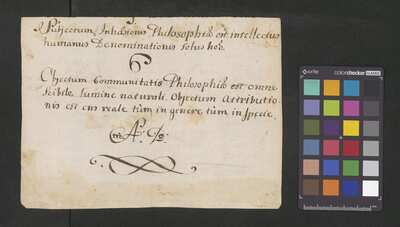 Subjectum Inhasionis Philosophiæ est intellectus
humanus Denominationis totus homo.
6
Objectum Communitatis Philosophiæ est omne
scibile lumine naturali. Objectum Attributio-
nis est ens reale tùm in genere tùm in specie.
colorchecker